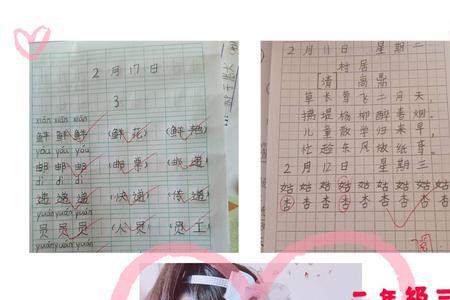 2月17日
3
xiān xiān xiān
鲜 鲜 鲜 (鲜花) (鲜艳)
yóu yóu yóu
邮 邮 邮 (邮票) (邮递)
dì di
递 递 递 (快递) (传递)
yuán yuán yuán
员 员 员 (人员) (员工)
yuán yuán yuán
2月11日 星期二
村居
[清] 高鼎
草长莺飞二月天,
拂堤杨柳醉春烟。
儿童散学归来早,
忙趁东风放纸鸢。
2月12日 星期三
姑 姑 姑 姑 姑 姑 姑 姑
杏 杏 杏 杏 杏 杏 杏 杏
二年级三